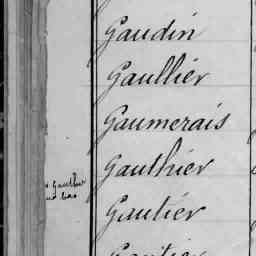 Gaudin
Gaullier
Gaumerais
Gauthier
Gautier